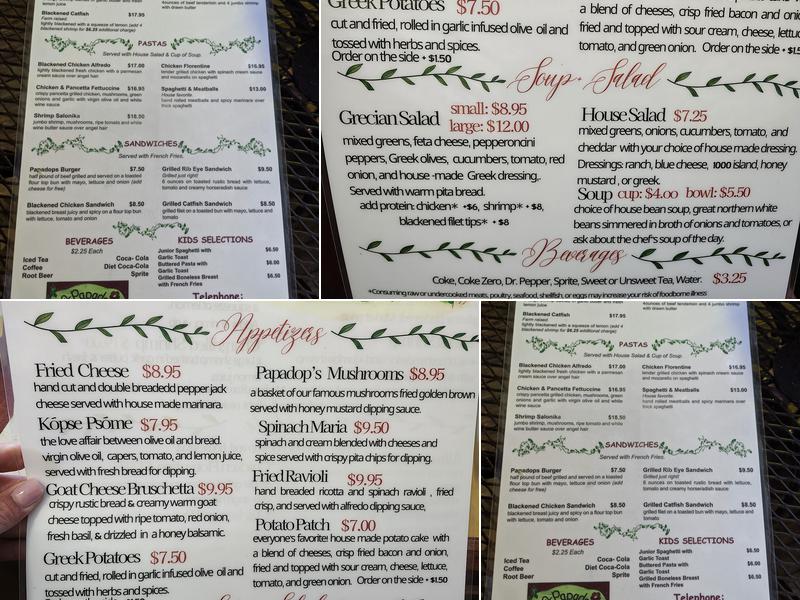 with house salad or fresh
Blackened Catfish $17.95
Farm raised
lightly blackened with a squeeze of lemon (add 4
blackened shrimp for $6.25 additional charge)
4ounces of beef tenderloin and 4 jumbo shrimp
with drawn butter
PASTAS
Served with House Salad & Cup of Soup.
Blackened Chicken Alfredo $17.00
lightly blackened fresh chicken with a parmesan
cream sauce over angel hair
Chicken & Pancetta Fettuccine $16.95
crispy pancetta grilled chicken, mushrooms, green
onions and garlic with virgin olive oil and white
wine sauce
Shrimp Salonika $18.50
jumbo shrimp, mushrooms, ripe tomato and white
wine butter sauce over angel hair
Chicken Florentine $16.95
tender grilled chicken with spinach cream sauce
and mozzarella on spaghetti
Spaghetti & Meatballs $13.00
House favorite.
hand rolled meatballs and spicy marinara over
thick spaghetti
SANDWICHES
Served with French Fries.
Papadops Burger $7.50
half pound of beef grilled and served on a toasted
flour top bun with mayo, lettuce and onion (add
cheese for free)
Blackened Chicken Sandwich $8.50
blackened breast juicy and spicy on a flour top bun
with lettuce, tomato and onion
Grilled Rib Eye Sandwich $9.50
Grilled just right!
6 ounces on toasted rustic bread with lettuce,
tomato and creamy horseradish sauce
Grilled Catfish Sandwich $8.50
grilled filet on a toasted bun with mayo, lettuce and
tomato
BEVERAGES
$2.25 Each
Iced Tea
Coffee
Root Beer
Coca- Cola
Diet Coca-Cola
Sprite
KIDS SELECTIONS
Junior Spaghetti with $6.50
Garlic Toast
Buttered Pasta with $6.00
Garlic Toast
Grilled Boneless Breast $6.50
with French Fries
Telephone:
Greek Potatoes $7.50
cut and fried, rolled in garlic infused olive oil and
tossed with herbs and spices.
Order on the side • $1.50
a blend of cheeses, crisp fried bacon and onion,
fried and topped with sour cream, cheese, lettuce,
tomato, and green onion. Order on the side • $1.50
Soup & Salad
Grecian Salad small: $8.95
large: $12.00
mixed greens, feta cheese, pepperoncini
peppers, Greek olives, cucumbers, tomato, red
onion, and house -made Greek dressing,.
Served with warm pita bread.
add protein: chicken* •$6, shrimp* • $8,
blackened filet tips* • $8
House Salad $7.25
mixed greens, onions, cucumbers, tomato, and
cheddar with your choice of house made dressing.
Dressings: ranch, blue cheese, 1000 island, honey
mustard , or greek.
Soup cup: $4.00 bowl: $5.50
choice of house bean soup, great northern white
beans simmered in broth of onions and tomatoes, or
ask about the chef's soup of the day.
Beverages
Coke, Coke Zero, Dr. Pepper, Sprite, Sweet or Unsweet Tea, Water. $3.25
*Consuming raw or undercooked meats, poultry, seafood, shellfish, or eggs may increase your risk of foodborne illness
Appetizers
Fried Cheese $8.95
hand cut and double breadedd pepper jack
cheese served with house made marinara.
Kōpse Psōme $7.95
the love affair between olive oil and bread.
virgin olive oil, capers, tomato, and lemon juice,
served with fresh bread for dipping.
Goat Cheese Bruschetta $9.95
crispy rustic bread & creamy warm goat
cheese topped with ripe tomato, red onion,
fresh basil, & drizzled in a honey balsamic.
Greek Potatoes $7.50
cut and fried, rolled in garlic infused olive oil and
tossed with herbs and spices.
Papadop's Mushrooms $8.95
a basket of our famous mushrooms fried golden brown
served with honey mustard dipping sauce.
Spinach Maria $9.50
spinach and cream blended with cheeses and
spice served with crispy pita chips for dipping.
Fried Ravioli $9.95
hand breaded ricotta and spinach ravioli , fried
crisp, and served with alfredo dipping sauce,
Potato Patch $7.00
everyone's favorite house made potato cake with
a blend of cheeses, crisp fried bacon and onion,
fried and topped with sour cream, cheese, lettuce,
tomato, and green onion. Order on the side • $1.50
Blackened Catfish $17.95
Farm raised
lightly blackened with a squeeze of lemon (add 4
blackened shrimp for $6.25 additional charge)
4ounces of beef tenderloin and 4 jumbo shrimp
with drawn butter
PASTAS
Served with House Salad & Cup of Soup.
Blackened Chicken Alfredo $17.00
lightly blackened fresh chicken with a parmesan
cream sauce over angel hair
Chicken & Pancetta Fettuccine $16.95
crispy pancetta grilled chicken, mushrooms, green
onions and garlic with virgin olive oil and white
wine sauce
Shrimp Salonika $18.50
jumbo shrimp, mushrooms, ripe tomato and white
wine butter sauce over angel hair
Chicken Florentine $16.95
tender grilled chicken with spinach cream sauce
and mozzarella on spaghetti
Spaghetti & Meatballs $13.00
House favorite.
hand rolled meatballs and spicy marinara over
thick spaghetti
SANDWICHES
Served with French Fries.
Papadops Burger $7.50
half pound of beef grilled and served on a toasted
flour top bun with mayo, lettuce and onion (add
cheese for free)
Blackened Chicken Sandwich $8.50
blackened breast juicy and spicy on a flour top bun
with lettuce, tomato and onion
Grilled Rib Eye Sandwich $9.50
Grilled just right!
6 ounces on toasted rustic bread with lettuce,
tomato and creamy horseradish sauce
Grilled Catfish Sandwich $8.50
grilled filet on a toasted bun with mayo, lettuce and
tomato
BEVERAGES
$2.25 Each
Iced Tea
Coffee
Root Beer
Coca- Cola
Diet Coca-Cola
Sprite
KIDS SELECTIONS
Junior Spaghetti with $6.50
Garlic Toast
Buttered Pasta with $6.00
Garlic Toast
Grilled Boneless Breast $6.50
with French Fries
Telephone: